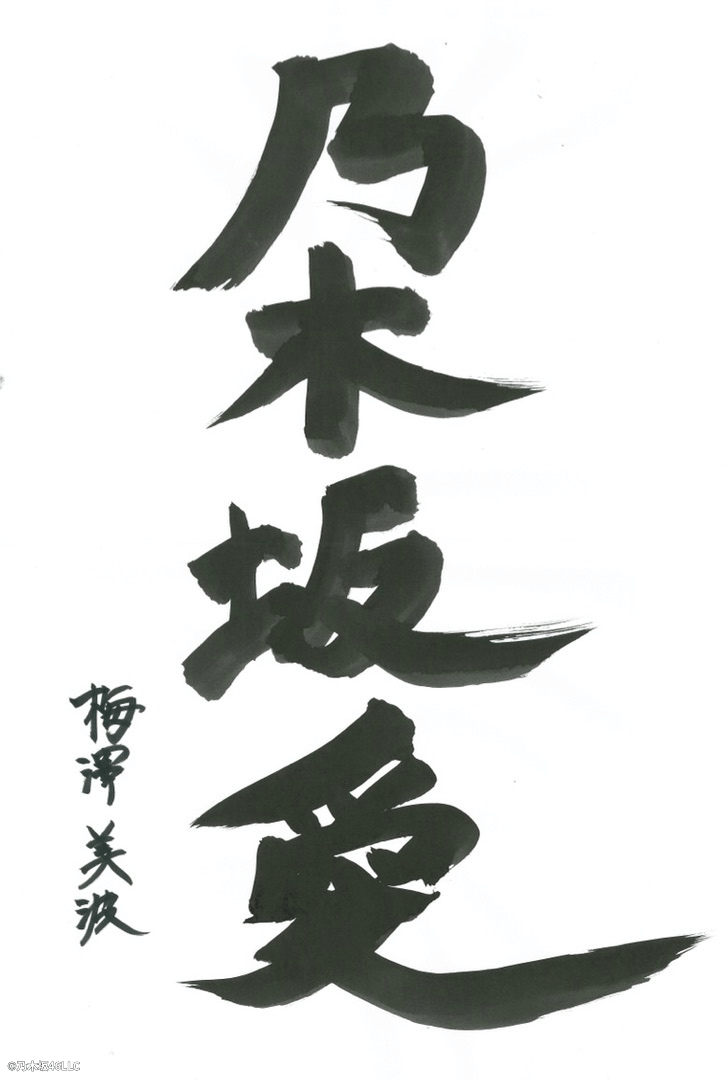 乃木坂愛
梅澤 美波
©乃木坂46LLC